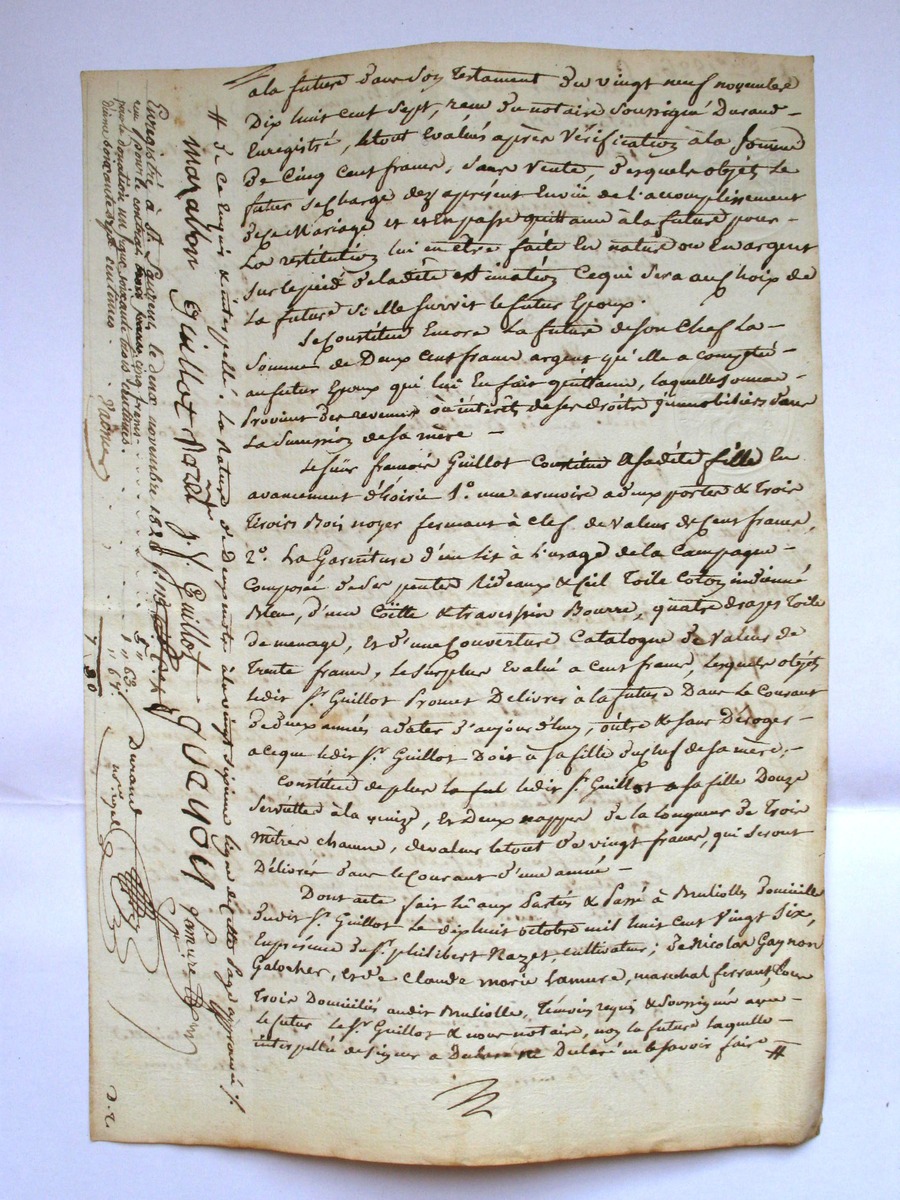 a la future dans son Testament du vingt neuf novembre
Dix huit cent sept, reçu du notaire soussigné Durand
Enregistré, le tout Evalués après Vérification à la somme
De Cinq Cent francs, sans Vente, Desquels objets Le
futur se charge dez apresent Envüe de l'accomplissement
de ce Mariage et et En passe quittance à la future pour
La restitution lui en être faite En nature ou En argent
sur le pied de ladite estimation Ce qui sera au Choix de
La future si elle survit le futur Epoux.
Se Constitue Encore La future de son Chef La
Somme de Deux Cent francs argent qu'elle a compté
au futur Epoux qui lui En fait quittance, laquelle somme
Provient des revenus ou intérêts de ses droits immobiliers dans
La succession de sa mère
Le sieur françois Guillot Constitue a sadite fille En
avancement d'hoirie 1.° une armoire a deux portes & Trois
Tiroirs Bois noyer fermant à clef de Valeur de Cent francs,
2.° La Garniture d'un Lit à L'usage de la Campagne
Composée de ses pentes Rideaux & Ciel Toile Coton indienne
Bleu, d'une Coëtte & traversin Bourre, quatre draps Toile
de menage, et d'une Couverture Catalogne de Valeur de
Trente francs, le surplus Evalué a Cent francs, lesquels objets
ledit S.r Guillot Promet Delivrer à la future Dans Le Courant
de deux années a dater d'aujourd'huy, outre & sans Deroger
a ce que ledit S.r Guillot Doit à sa fille du chef de sa mère;
Constitue de plus ledit S.r Guillot a sa fille Douze
Serviettes à la Venize, et Deux nappes de la longueur de Trois
mètres chacune, de valeur le tout de vingt francs, qui seront
Délivrés dans le Courant d'une année
Dont acte, fait lû aux Parties & Passé à Brulliolles Domicile
dudit S.r Guillot Le dix huit octobre mil huit cent Vingt Six,
En présence de S.r philibert Razet, cultivateur; De Nicolas Gaynon
Galocher, et de Claude marie Lamure, marechal ferrant, tous
Trois Domiciliés audit Brulliolle, Témoins requis & Soussignés avec
le futur Le S.r Guillot & nous notaire, non la future laquelle
interpellée de signer a Declaré ne le savoir faire #
# De ce Enquis & interpellé. La Rature de Deux mots à la vingt sixième ligne de Cette Page approuvée
marabon Guillot Razet J. F. Guillot
guaynon Lamure
Durand
no. royal
Enregistré à St. Laurent le deux novembre 1826
reçu pour le contrat cinq francs 5 "
pour la donation un franc soixante trois centimes 1 " 63
dixme soixante sept centimes " 67
7 30
D. R.